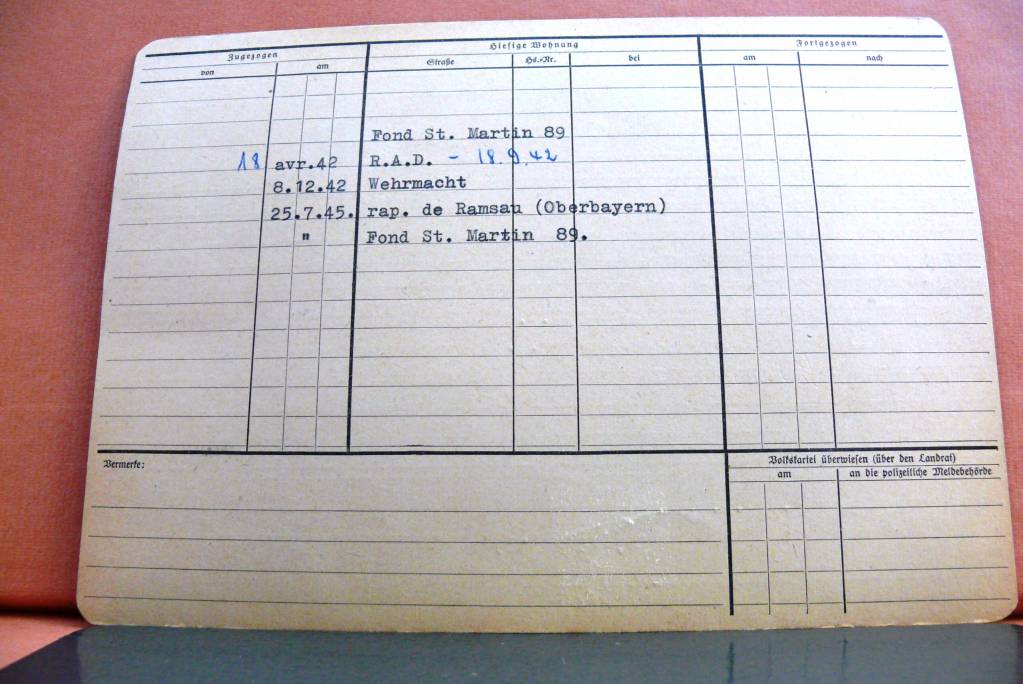 Zugezogen
Hiesige Wohnung
Fortgezogen
von
am
Straße
Hs.-Nr.
bei
am
nach
Fond St. Martin 89
18 avr.42 R.A.D. - 18.9.42
8.12.42 Wehrmacht
25.7.45. rap. de Ramsau (Oberbayern)
" Fond St. Martin 89.
Vermerke:
Volkskartei überwiesen (über den Landrat)
am
an die polizeiliche Meldebehörde